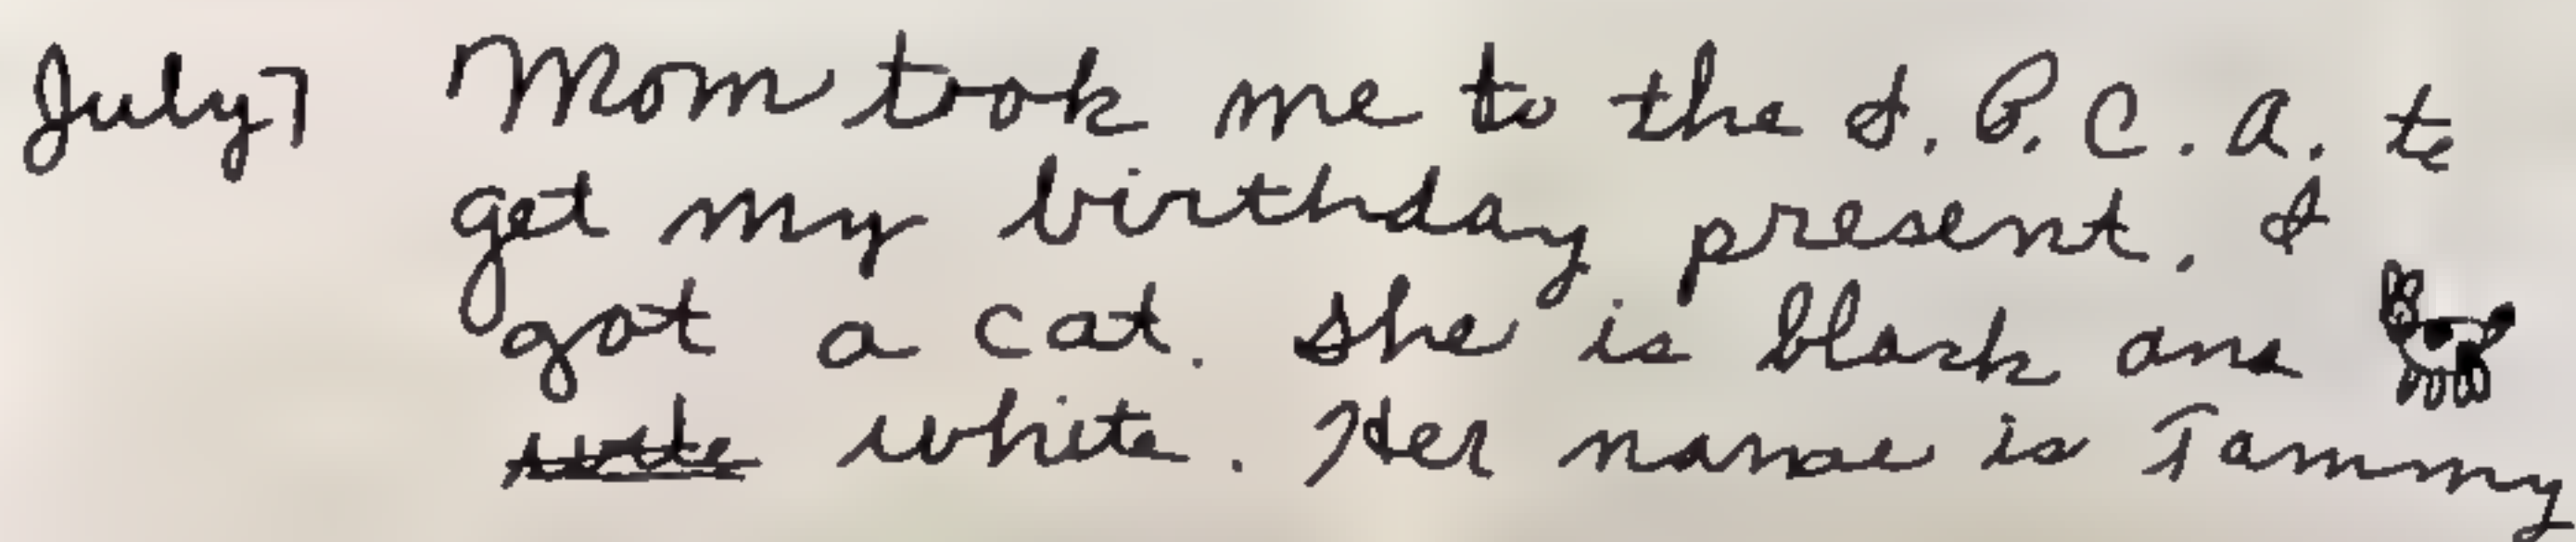 July 7 Mom took me to the S.P.C.A. to
get my birthday present. I
got a cat. She is black and
white. Her name is Tammy